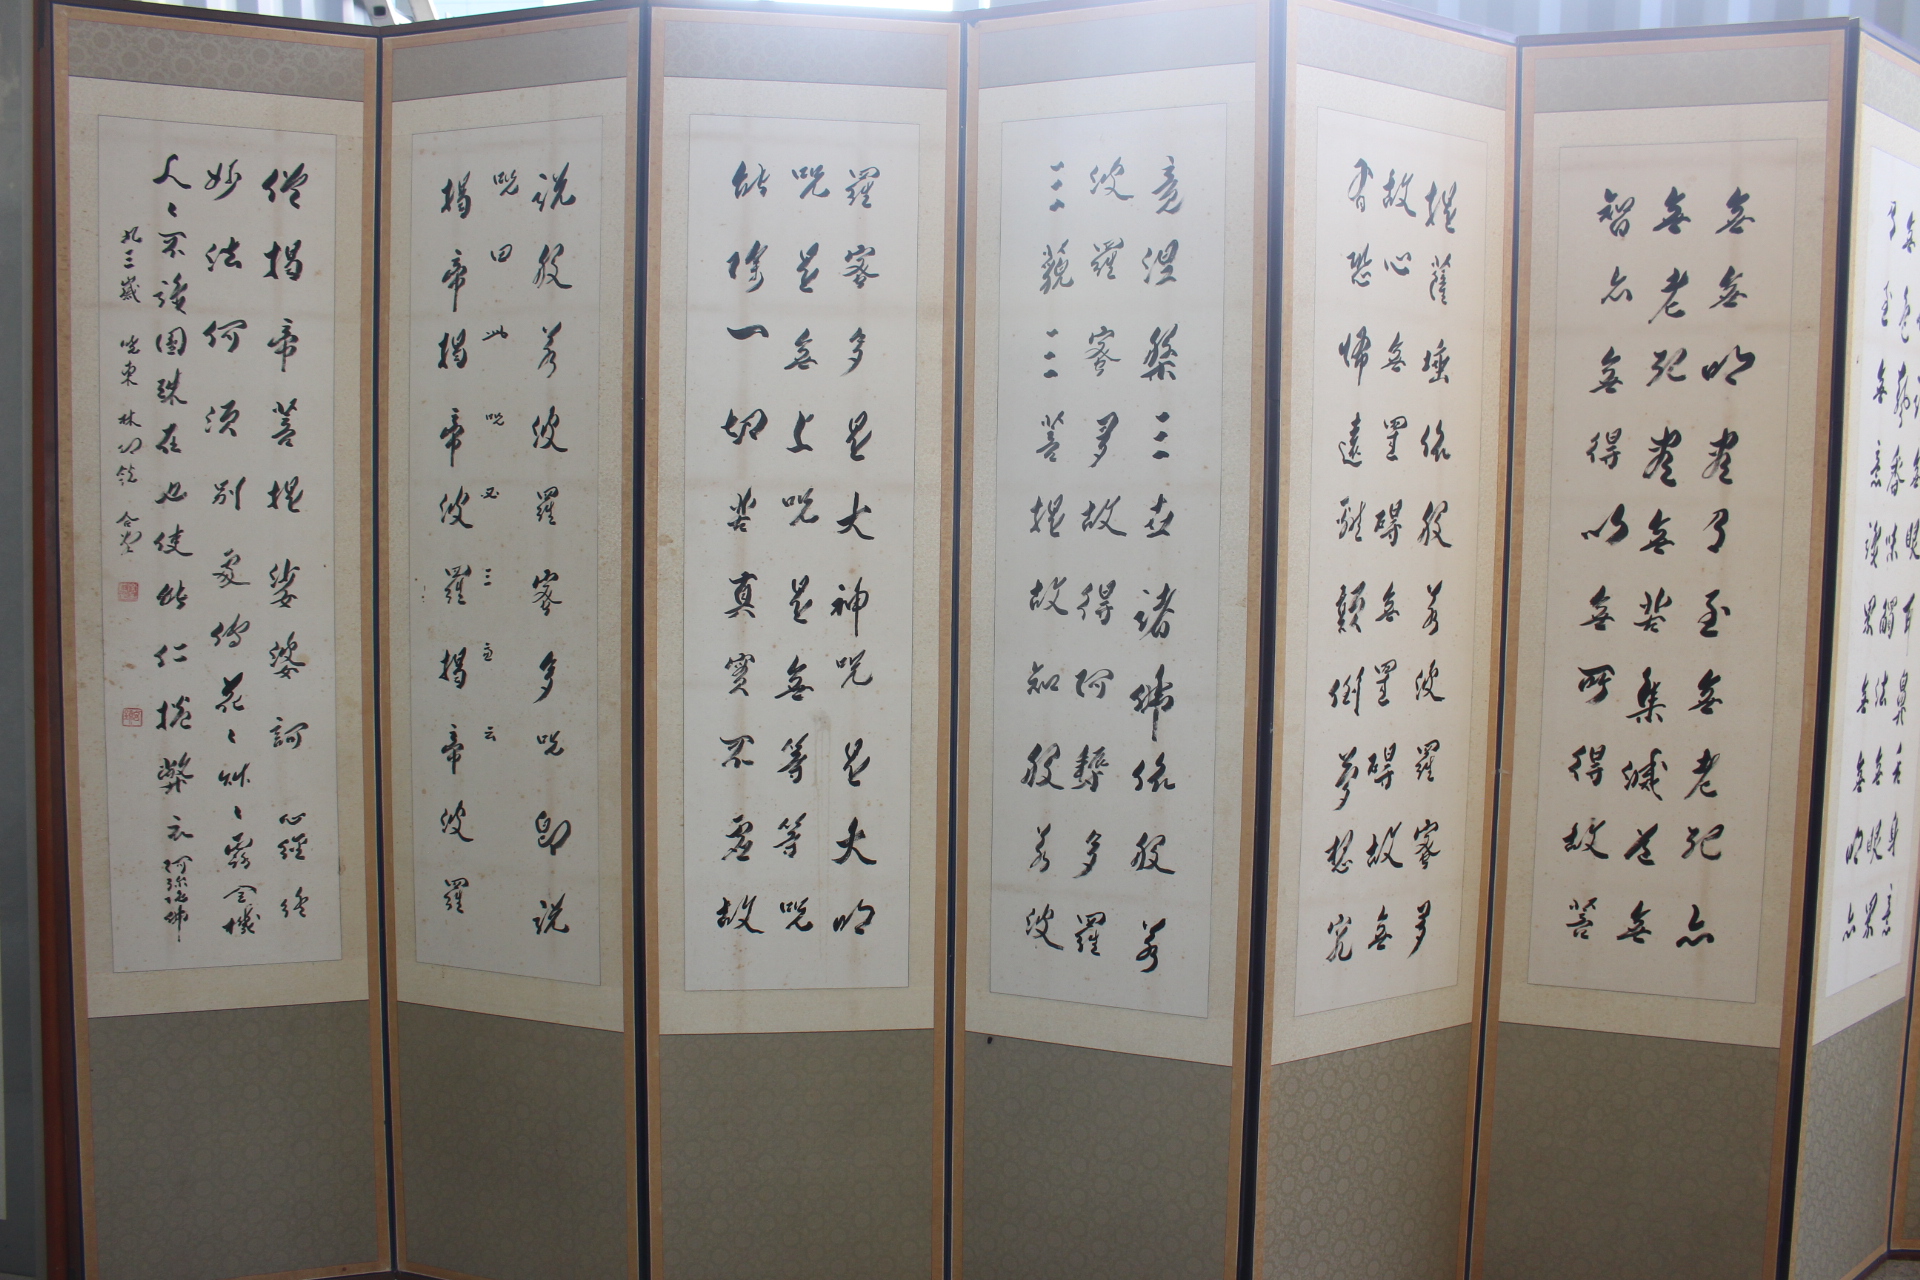 識無眼耳鼻舌身意
無色聲香味觸法無眼界
乃至無意識界無無明亦
無無明盡乃至無老死亦
無老死盡無苦集滅道無
智亦無得以無所得故菩
提薩埵依般若波羅蜜多
故心無罣碍無罣碍故無
有恐怖遠離顚倒夢想究
竟涅槃三世諸佛依般若
波羅蜜多故得阿耨多羅
三藐三菩提故知般若波
羅蜜多是大神呪是大明
呪是無上呪是無等等呪
能除一切苦真實不虛故
說般若波羅蜜多呪即說
呪曰 此呪 三 云
揭帝揭帝波羅揭帝波羅
僧揭帝菩提娑婆訶 心經終
妙法何須別處傳花〻艸〻露全機
人〻不識圓珠在也使能仁捲弊衣 阿彌陀佛
九三歲 曉東 林 合掌